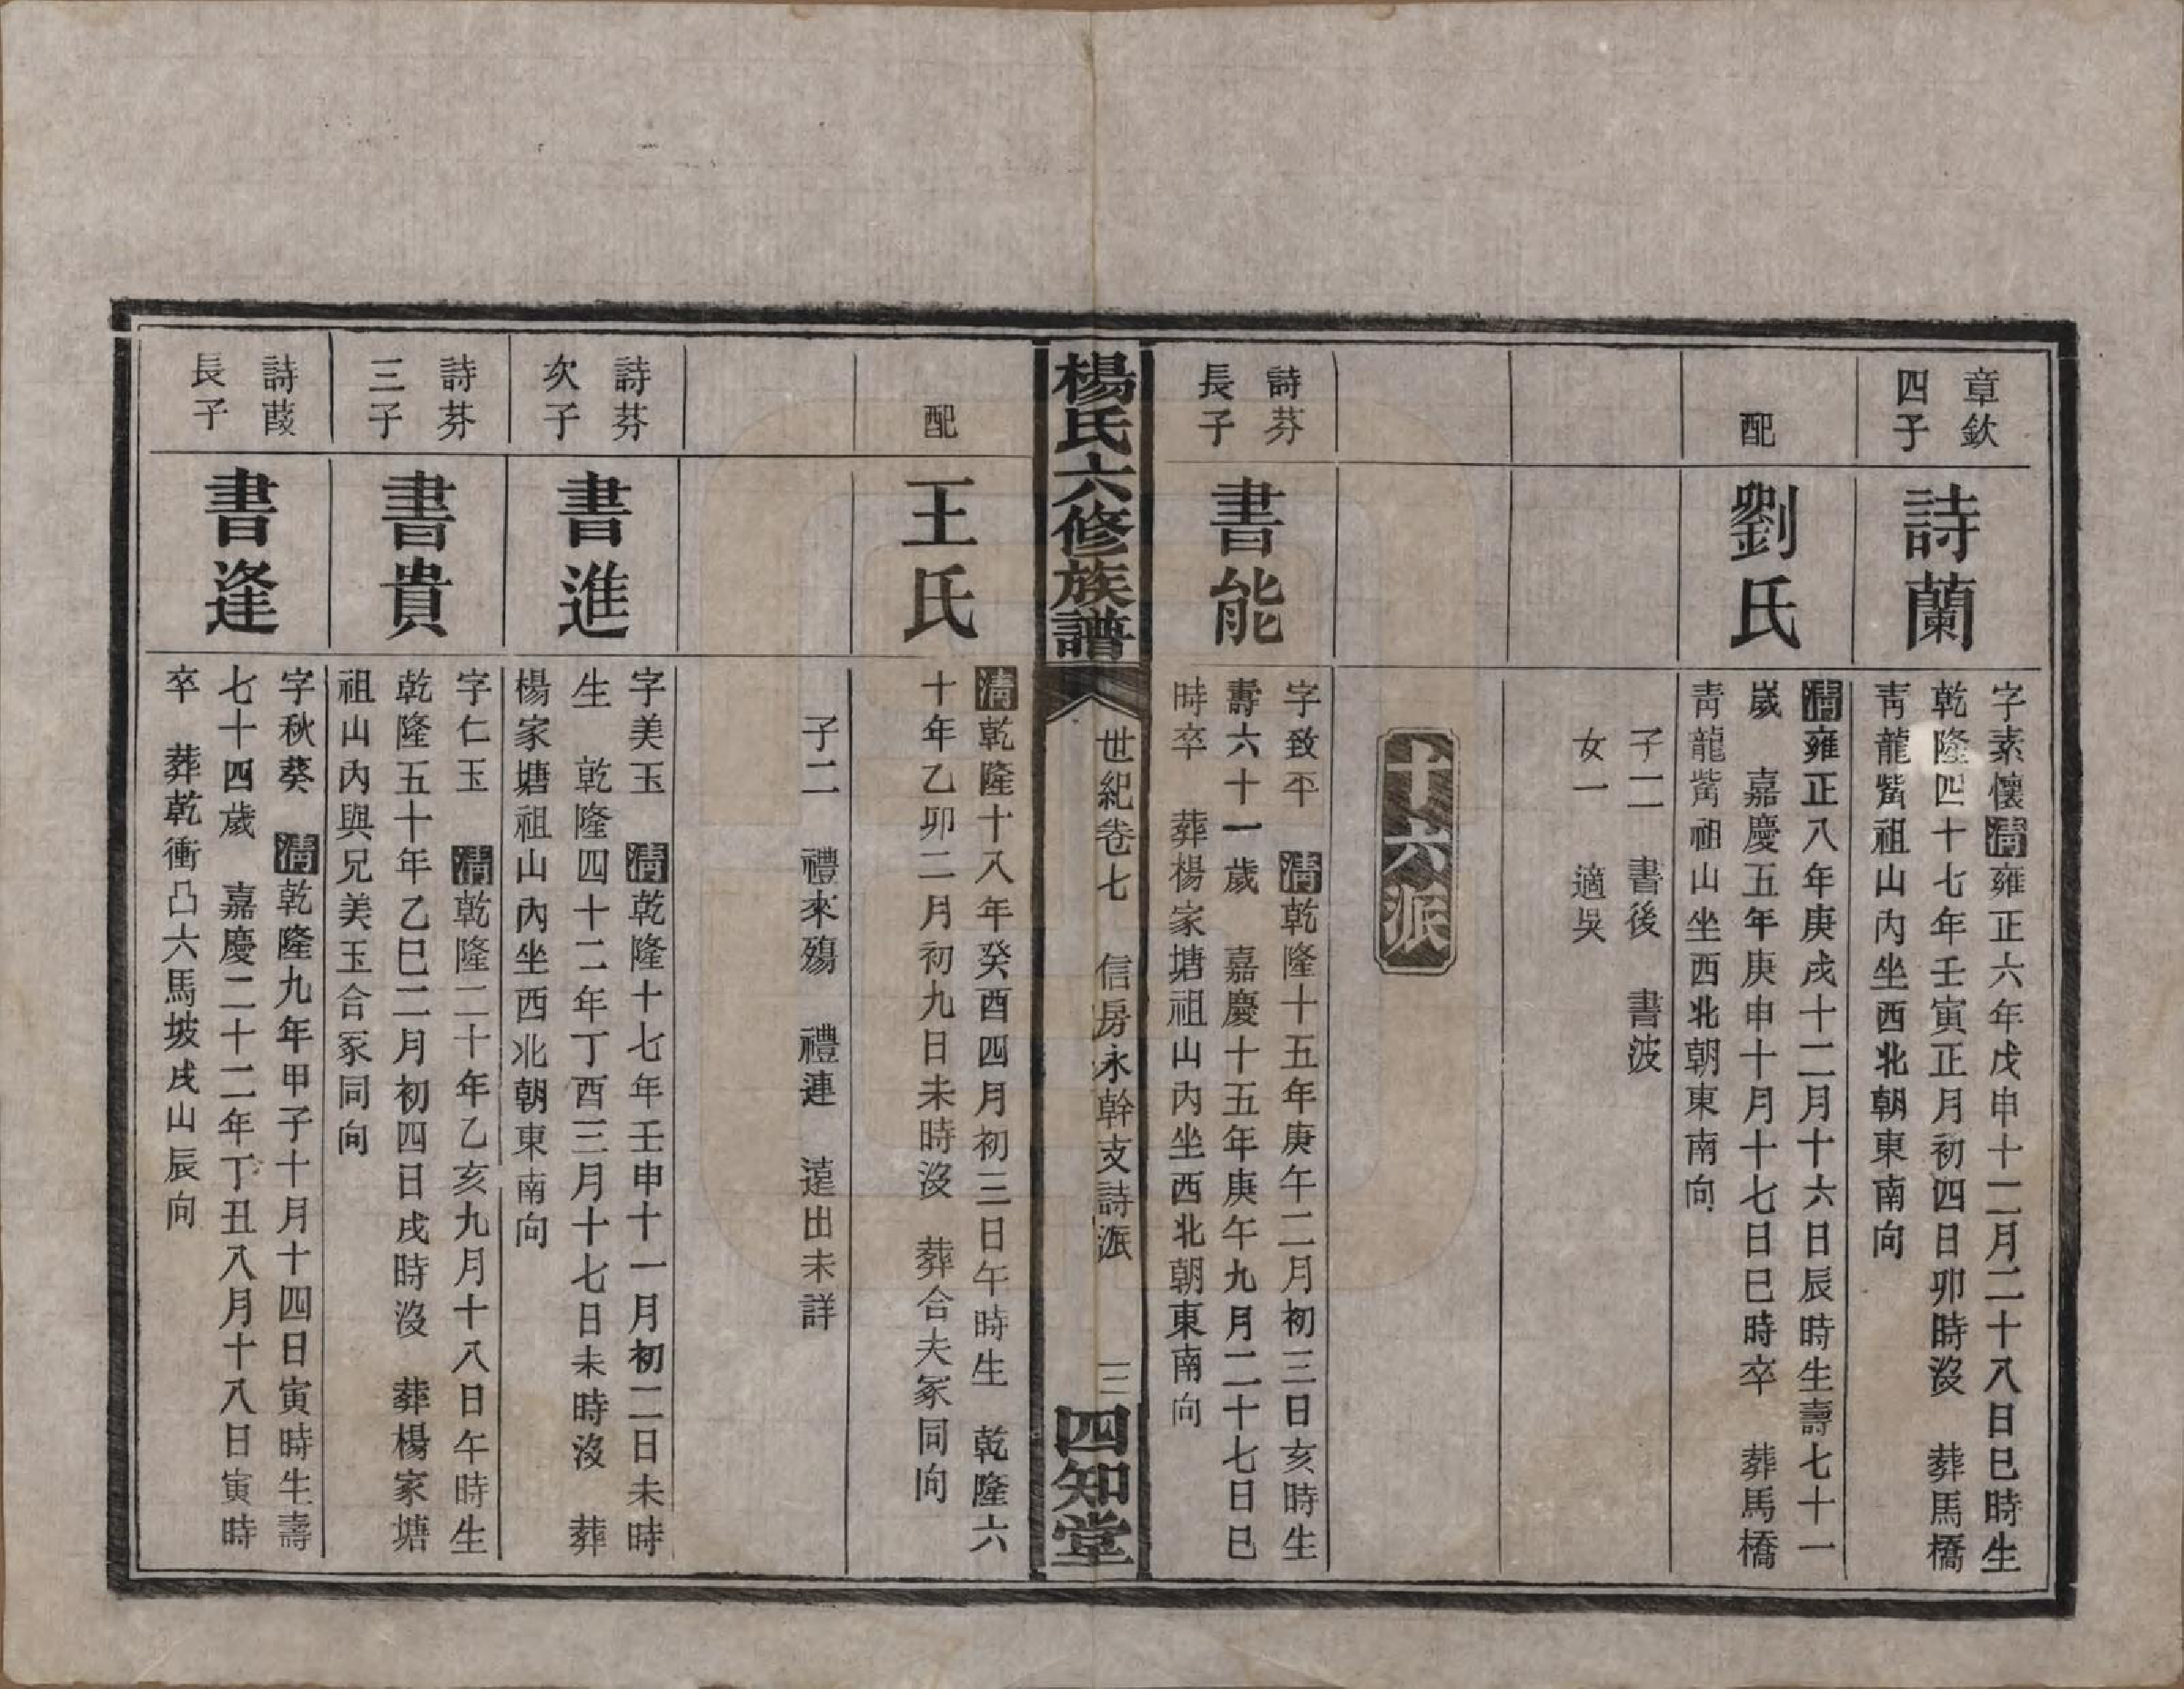 章欽
四子
詩蘭
字素懷清雍正六年戊申十二月二十八日巳時生
乾隆四十七年壬寅正月初四日卯時沒　葬馬橋
靑龍嘴祖山內坐西北朝東南向
配
劉氏
清雍正八年庚戌十二月十六日辰時生壽七十一
歲　嘉慶五年庚申十月十七日巳時卒　葬馬橋
靑龍嘴祖山坐西北朝東南向
子二　書後　書波
女一　適吳
十六派
詩芬
長子
書能
字致平　清乾隆十五年庚午二月初三日亥時生
壽六十一歲　嘉慶十五年庚午九月二十七日巳
時卒　葬楊家塘祖山內坐西北朝東南向
楊氏六修族譜
世紀卷七　信房永幹支詩派
三
四知堂
配
王氏
清乾隆十八年癸酉四月初三日午時生　乾隆六
十年乙卯二月初九日未時沒　葬合夫冢同向
子二　禮來殤　禮連　遠出未詳
詩芬
次子
書進
字美玉　清乾隆十七年壬申十一月初二日未時
生　乾隆四十二年丁酉三月十七日未時沒　葬
楊家塘祖山內坐西北朝東南向
詩芬
三子
書貴
字仁玉　清乾隆二十年乙亥九月十八日午時生
乾隆五十年乙巳二月初四日戌時沒　葬楊家塘
祖山內與兄美玉合冢同向
詩葭
長子
書逢
字秋葵　清乾隆九年甲子十月十四日寅時生壽
七十四歲　嘉慶二十二年丁丑八月十八日寅時
卒　葬乾衝凸六馬坡戌山辰向